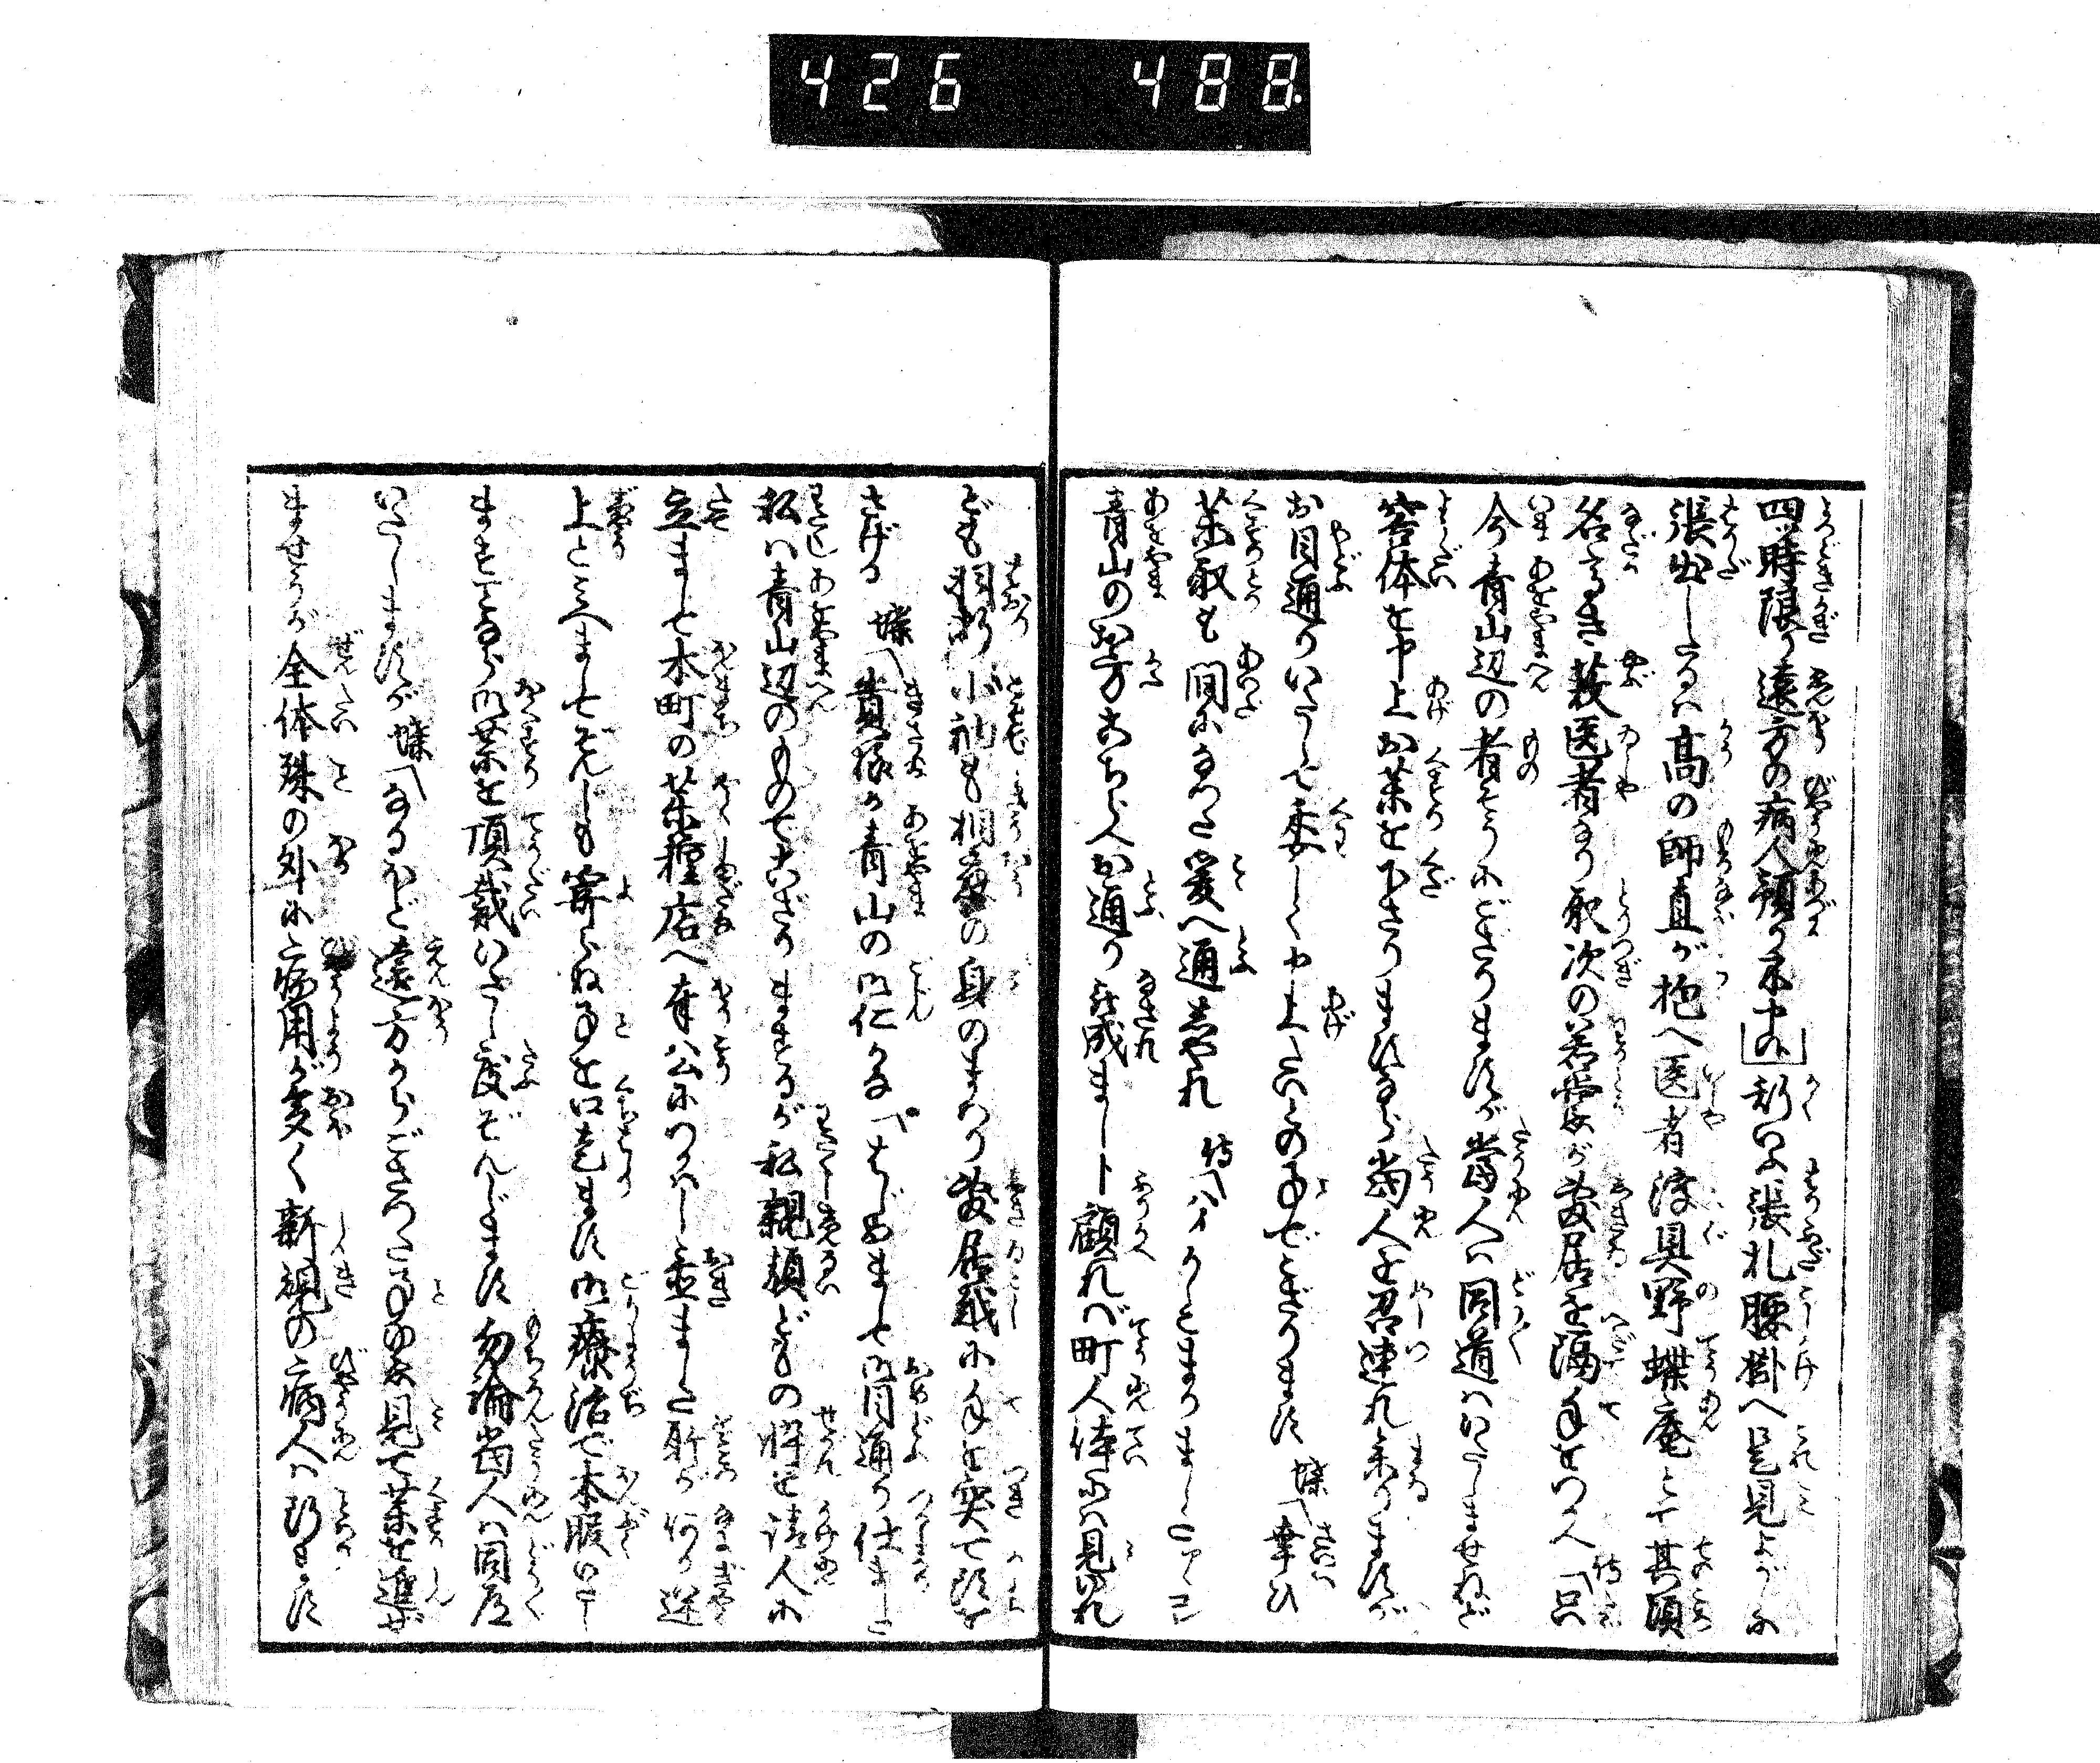 426 488
四ツ時限り遠方の病人預り不申の 斯いふ張札腰掛へ是見よがしに
張出したるハ高の師直が抱へ医者渡具野蝶庵とて其頃
名高き薮医者なり取次の若党が敷居を隔手をつかへ 侍「只
今青山辺の者そうにござりますが当人ハ同道ハいたしませねど
容体を申上お薬を下さりますなら当人を召連れ参りますが
お目通りいたして委しく申上たいとの事でござります 蝶「幸ひ
薬取も間になつた爰へ通しやれ 侍「ハイかしこまりました
青山のお方こちらへお通り被成ましト顧れバ町人体には見ゆれ
ども羽折小袖も相応の身のまはり敷居越に手を突て頭を
さげる 蝶「貴様か青山の御仁かな「はじめまして御目通り仕ました
私ハ青山辺のものでござりまするが私親類どもの忰を請人に
立まして本町の薬種店へ奉公につかはし置ました所が何か逆
上とみへましてぞんじも寄らぬ事を口走ます御療治で本腹いたし
ます事なら御薬を頂戴いたし度ぞんじます勿論当人ハ同道
いたしますが 蝶「なるほど遠方からござつた事ゆゑ見て薬を進ぜ
ませうが全体殊の外に病用が多く新規の病人ハ断ます